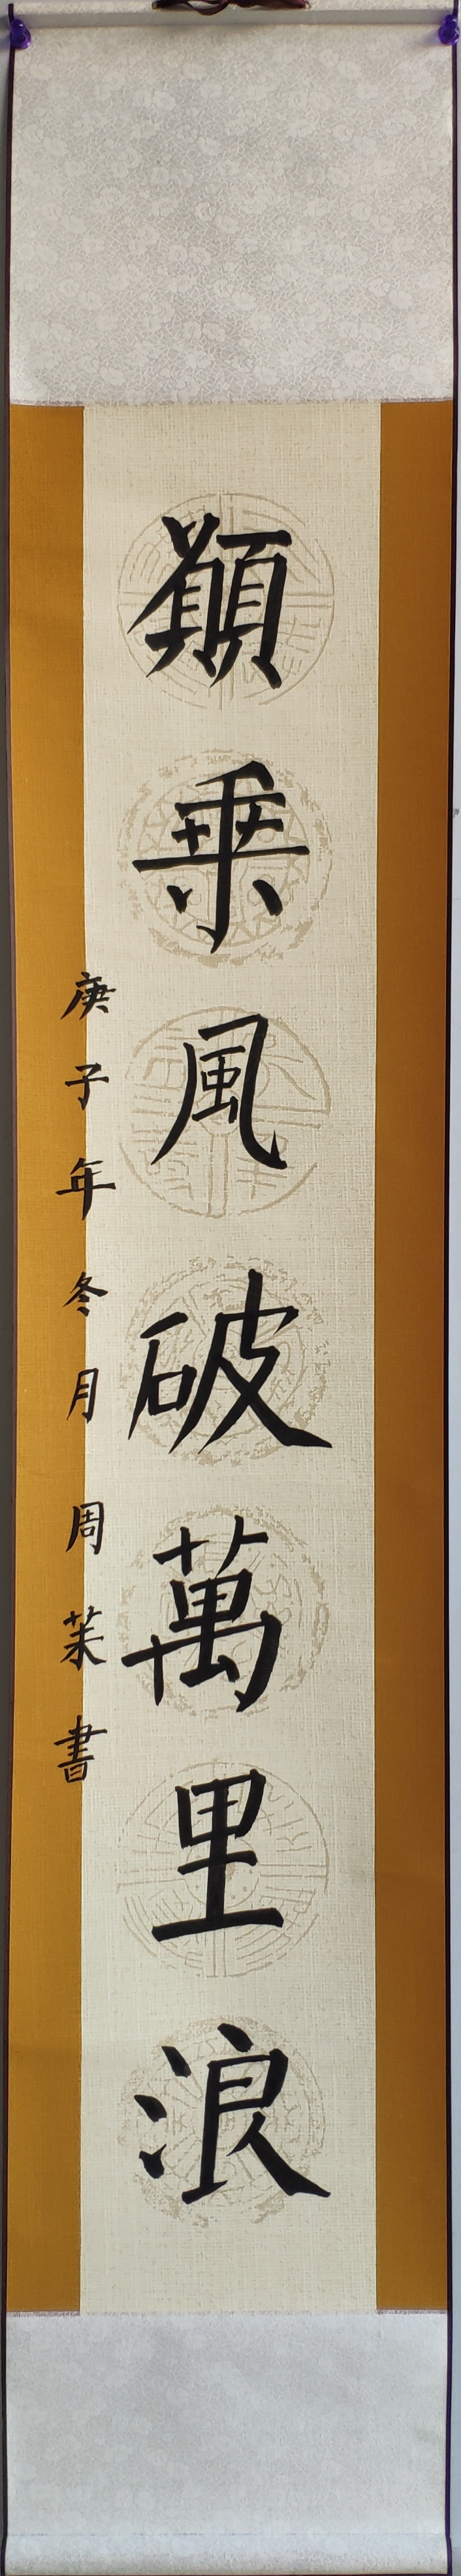 願乘風破萬里浪
庚子年冬月 周茱書